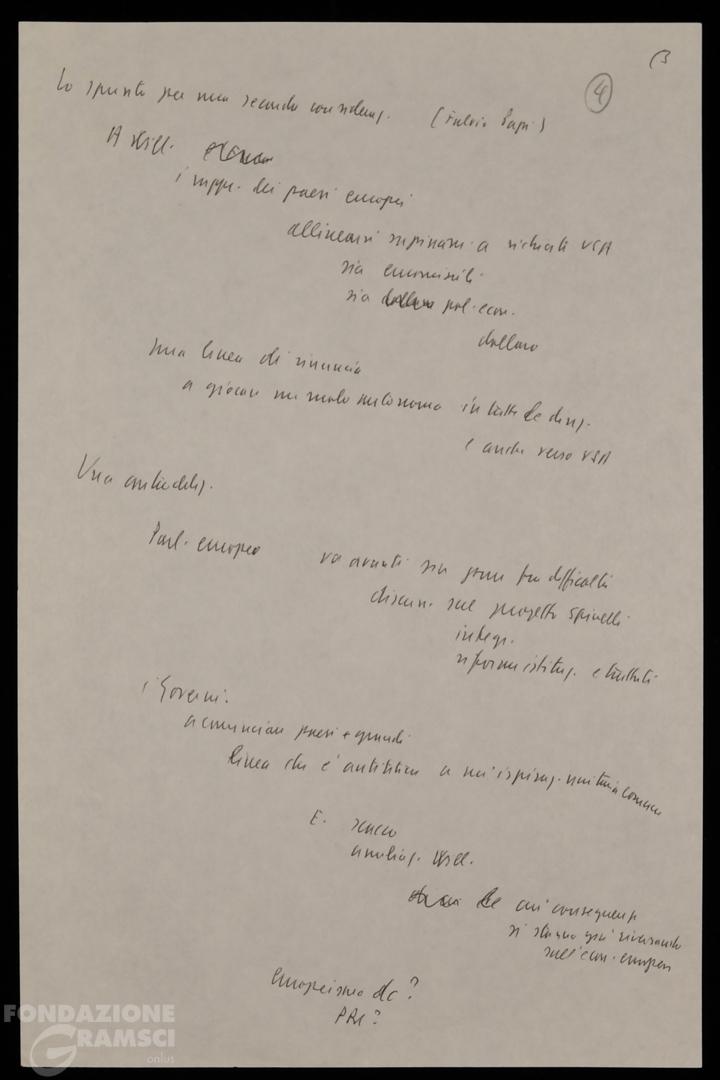 13
4
Lo spunto per una seconda consideraz. (Fulvio Papi)
A Will.
i rappr. dei paesi europei
allinearsi supinam. a richieste USA
sia euromissili
sia pol. econ.
dollaro
una linea di rinuncia
a giocare un ruolo autonomo in tutte le direz.
e anche verso USA
Una contraddiz.
Parl. europeo va avanti sia pure fra difficoltà
discuss. sul progetto Spinelli
integr.
riforma istituz. e trattati
i Governi.
a cominciare paesi + grandi
linea che è antitetica a un'ispiraz. unitaria comune
E. scacco
umiliaz. Will.
le cui conseguenze
si stanno già riversando
sull'econ. europea
Europeismo dc?
PRI?
FONDAZIONE
GRAMSCI
onlus